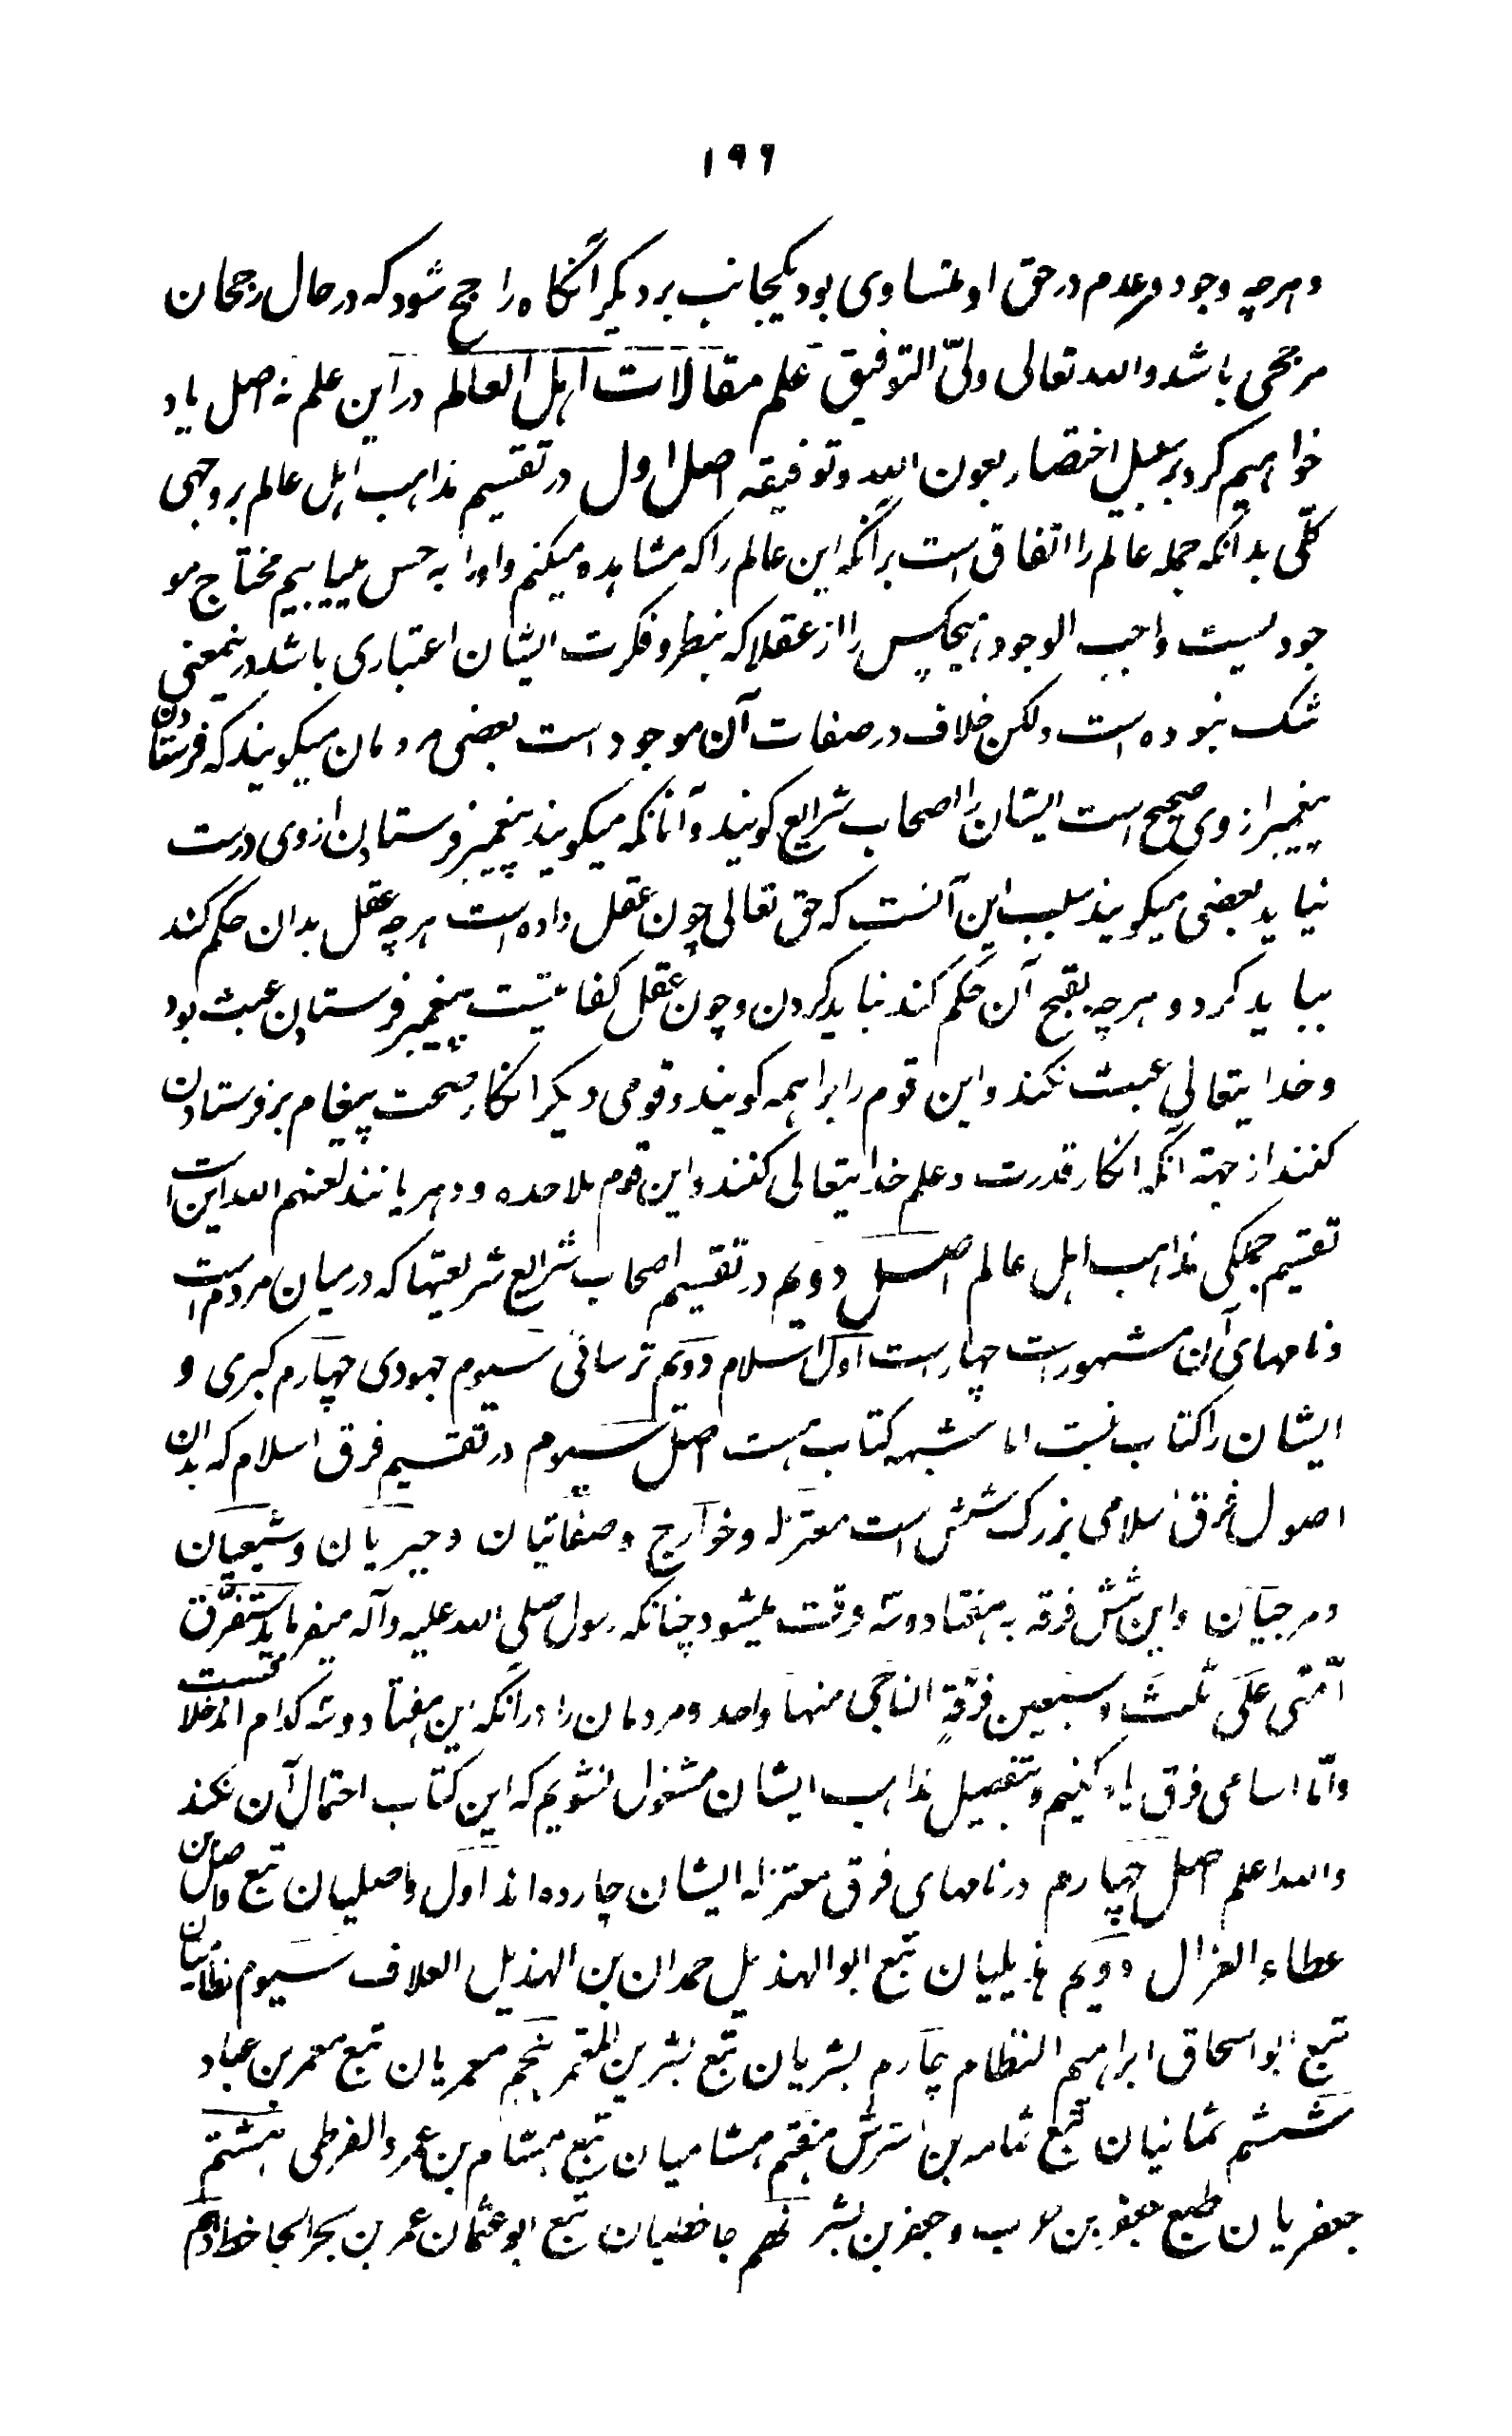 ۱۹۶
و هرچه وجود و عدم در حق او متساوی بود یکجانب بر دیگر آنگاه راجح شود که در حال رجحان
مرجحی باشد والله تعالی ولیّ التوفیق علم مقالات اهل العالم در این علم نه اصل یاد
خواهیم کرد بر سبیل اختصار بعون الله و توفیقه اصل اول در تقسیم مذاهب اهل عالم بر وجهی
کلّی بدانکه جمله عالم را اتفاق است برآنکه این عالم را که مشاهده میکنم و اورا به حس مییابیم محتاج مو
جودیست واجب الوجود هیچکس را از عقلا که بنظر و فکرت ایشان اعتباری باشد درینمعنی
شک نبوده است ولکن خلاف در صفات آن موجود است بعضی مردمان میگویند که فرستادن
پیغمبر از وی صحیح است ایشان را اصحاب شرایع گویند و آنانکه میگویند پیغمبر فرستادن از وی درست
نیاید بعضی میگویند سبب این آنست که حق تعالی چون عقل داده است هر چه عقل بدان حکم کند
بباید کرد و هر چه بقبح آن حکم کند نباید کردن و چون عقل کفایتست پیغمبر فرستادن عبث بود
و خدایتعالی عبث نکند و این قوم را براهمه گویند و قومی دیگر انکار صحت پیغام بر فرستادن
کنند از جهة آنکه انکار قدرت و علم خدایتعالی کنند و این قوم ملاحده و دهریانند لعنهم الله این است
تقسیم جملگی مذاهب اهل عالم اصل دویم در تقسیم اصحاب شرایع شریعتها که در میان مردم است
و نامهای آن مشهور است چهار است اول اسلام دویم ترسائی سیوم جهودی چهارم گبری و
ایشان را کتاب نیست اما شبهه کتاب هست اصل سیوم در تقسیم فرق اسلام که بدان
اصول فرق اسلامی بزرگ شش است معتزله و خوارج و صفاتیان و جبریان و شیعیان
و مرجیان و این شش فرقه به هفتاد و سه فرقت میشود چنانکه رسول صلی الله علیه وآله میفرماید ستفرّق
اُمّتی عَلَی ثلث و سبعین فرقةٍ الناجی منها واحد و مردمان را در آنکه این هفتاد و سه کدام اند خلافست
و امّا اسامی فرق یاد کنیم و بتفصیل مذاهب ایشان مشغول نشویم که این کتاب احتمال آن نکند
والله اعلم اصل چهارم در نامهای فرق معتزله ایشان چارده اند اول واصلیان تبع واصل بن
عطاء الغزال دویم هذیلیان تبع ابوالهذیل حمدان بن الهذیل العلاف سیوم نظامیان
تبع ابو اسحاق ابراهیم النظام چارم بشریان تبع بشر بن المعتمر پنجم معمریان تبع معمر بن عباد
ششم ثمانیان تبع ثمامه بن اشرش هفتم هشامیان تبع هشام بن عمرو الفرطی هشتم
جعفریان تبع جعفر بن حرب و جعفر بن بشر نهم جاحظیان تبع ابو عثمان عمر بن بحر الجاحظ دهم